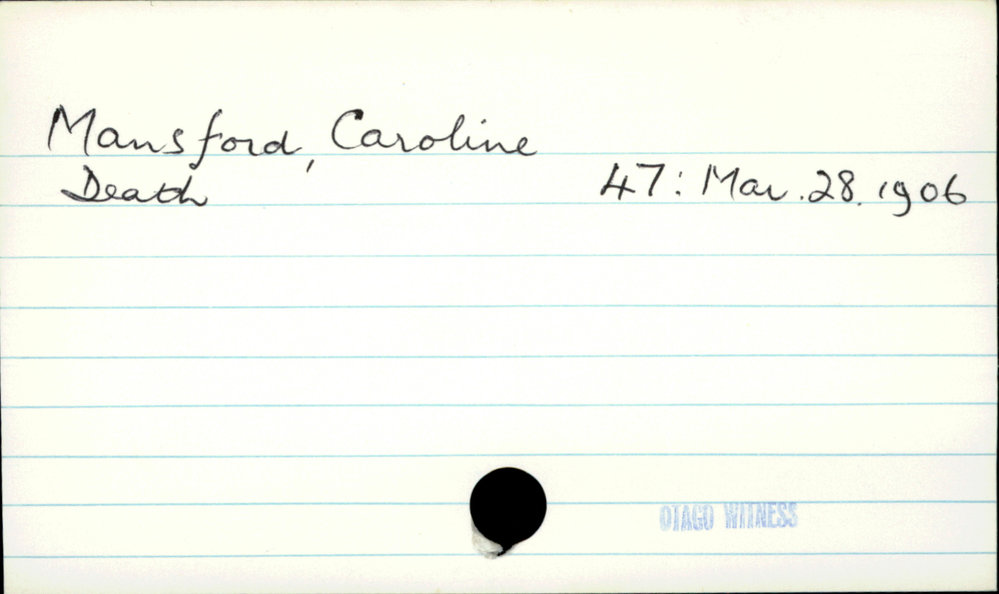 Mansford, Caroline
Death 47: Mar. 28. 1906
OTAGO WITNESS